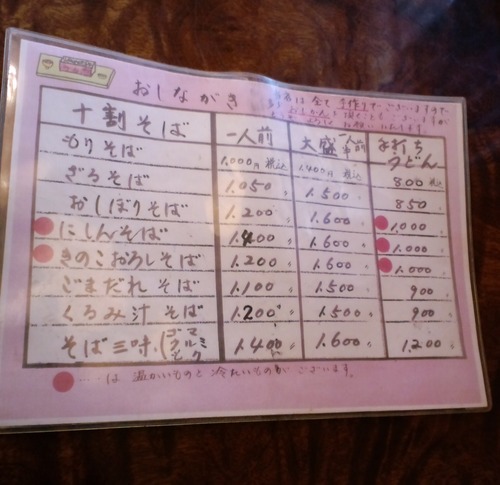 おしながき
は全て手作りでございますので
お願いいたします
十割そば 一人前 大盛 一人半前 手打ちうどん
もりそば 1,000円税込 1,400円税込 800税込
ざるそば 1.050〃 1.500〃 850〃
おしぼりそば 1.200〃 1.600〃 1.000〃
にしんそば 1.400〃 1.600〃 1.000〃
きのこおろしそば 1.200〃 1.600〃 1.000〃
ごまだれそば 1.100〃 1.500〃 900〃
くるみ汁そば 1.200〃 1.500〃 900〃
そば三味(ゴマ クルミ 1.400〃 1.600〃 1.200〃
……は 温かいものと冷たいものがございます。